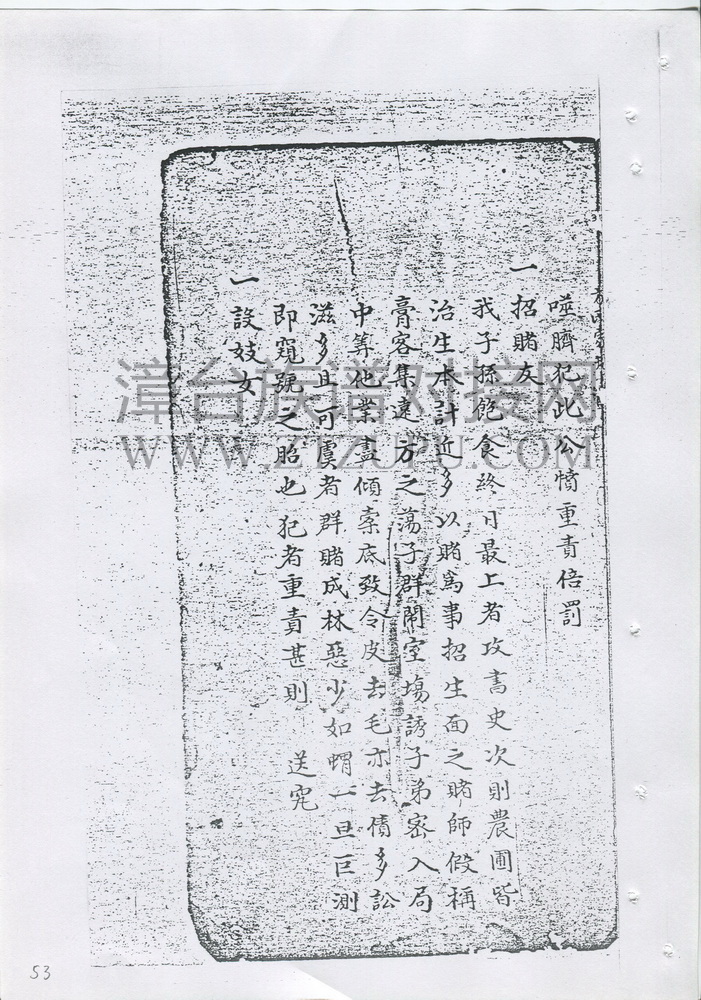 噬臍犯此公憤重責倍罰
一招賭友
我子孫飽食終日最上者攻書史次則農圃皆
治生本計近多以賭為事招生面之賭師假稱
膏客集遠方之蕩子群鬧室塲誘子弟密入局
中筭他業盡傾索底致令皮去毛亦去債多訟
滋多且可虞者群賭成林惡少如蝟一旦叵測
即窺號之照也犯者重責甚則 送究
一設妓女
漳台族谱对接网
WWW.ZTZUPU.COM
53